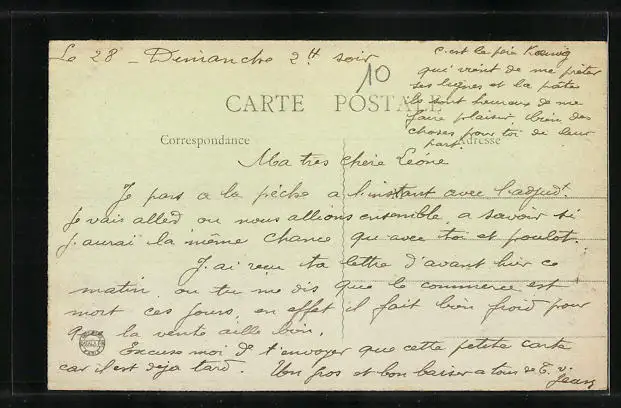 Le 28 - Dimanche 2H soir
10
c'est le père Koenig
qui vient de me prêter
ses lignes et la pâte
ils sont heureux de me
faire plaisir, bien des
choses pour toi de leur
part.
CARTE POSTALE
Correspondance
Adresse
Ma très chère Léone
Je pars a la pêche a l'instant avec l'adjudt.
Je vais aller ou nous allions ensemble, a savoir si
j'aurai la même chance qu'avec toi et poulot.
J'ai reçu ta lettre d'avant hier ce
matin, ou tu me dis que le commerce est
mort ces jours, en effet il fait bien froid pour
que la vente aille bien.
Excuse moi de t'envoyer que cette petite carte
car il est déja tard. Un gros et bon baiser a tous de T. v.
Jean